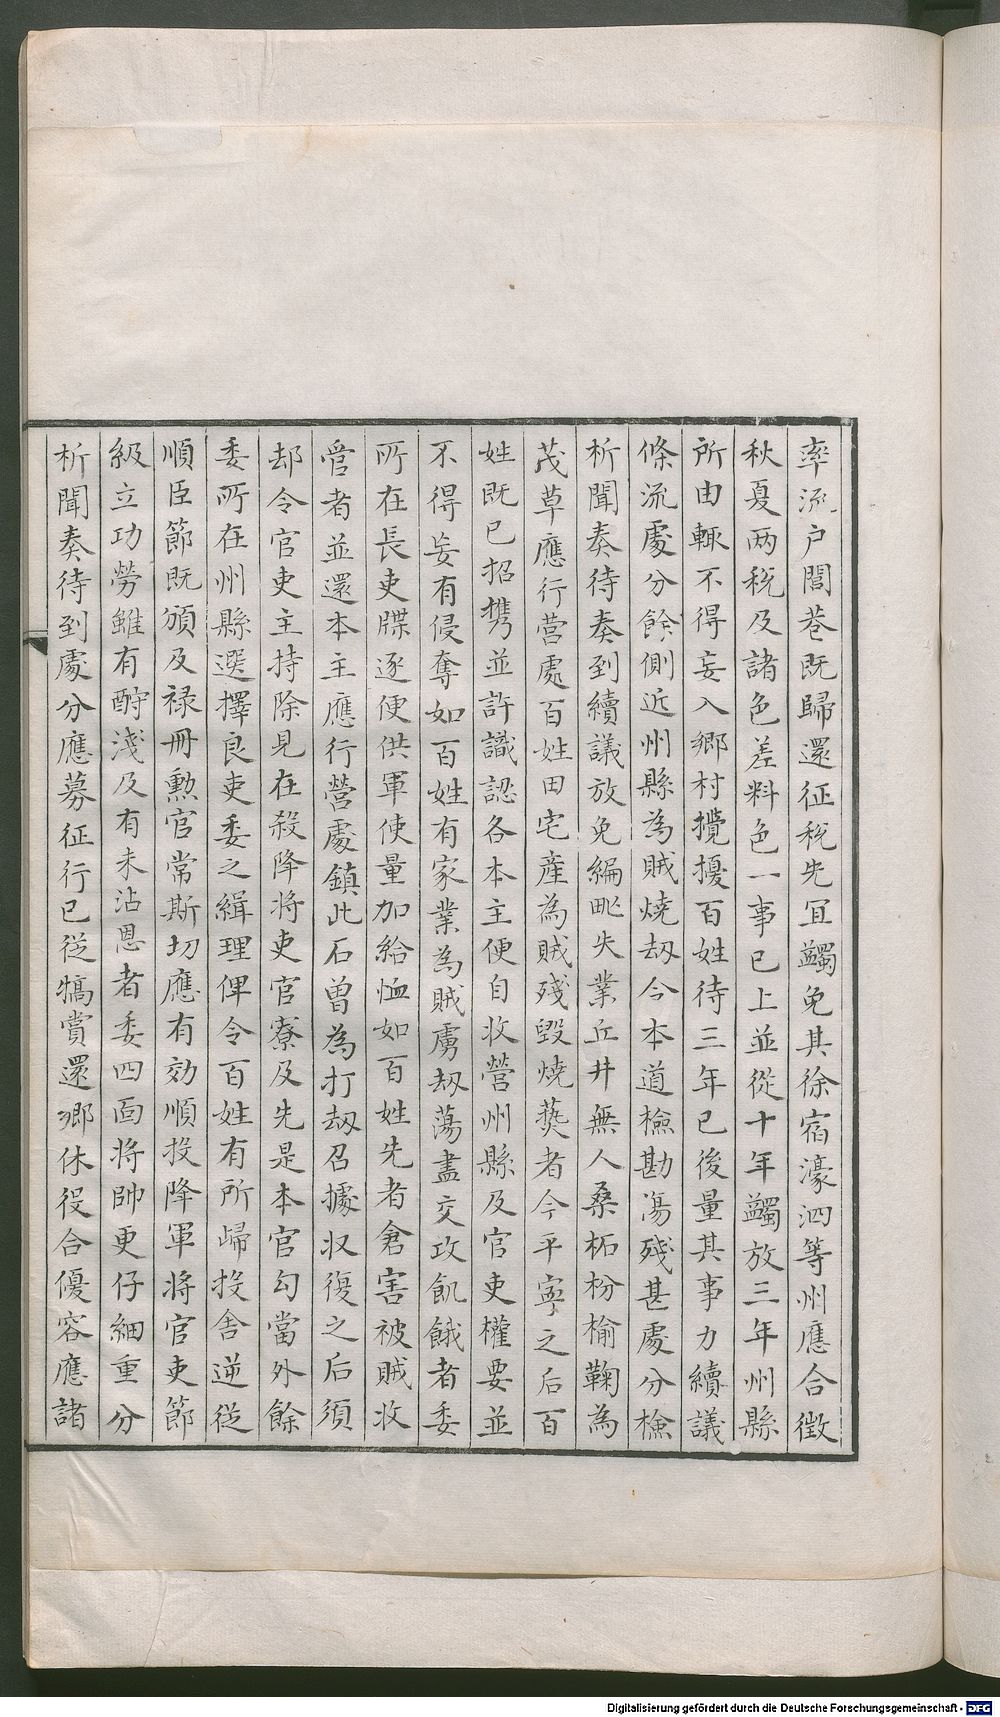 率流户閭巷既歸還征稅先冝蠲免其徐宿濠泗等州應合徴
秋夏两稅及諸色差料色一事已上並從十年蠲放三年州縣
所由輙不得妄入鄉村攪擾百姓待三年已後量其事力續議
條流處分餘側近州縣為賊燒刼令本道檢勘傷殘甚處分檢
析聞奏待奏到續議放免編甿失業丘井無人桑柘枌榆鞠為
茂草應行营處百姓田宅産為賊殘毁燒爇者今平寧之后百
姓既已招携並許識認各本主便自收營州縣及官吏權要並
不得妄有侵奪如百姓有家業為賊虜刼蕩盡交攻飢餓者委
所在長吏牒逐便供軍使量加給恤如百姓先者倉害被賊收
管者並還本主應行營處鎮此石曾為打刼召據収復之后須
却令官吏主持除見在殺降將吏官寮及先是本官勾當外餘
委所在州縣選擇良吏委之緝理俾令百姓有所歸投舍逆從
順臣節既頒及禄冊勲官常斯切應有効順投降軍將官吏節
級立功勞雖有酧淺及有未沾恩者委四面將帥更仔細重分
析聞奏待到處分應募征行已從犒賞還鄉休役合優容應諸
Digitalisierung gefördert durch die Deutsche Forschungsgemeinschaft - DFG